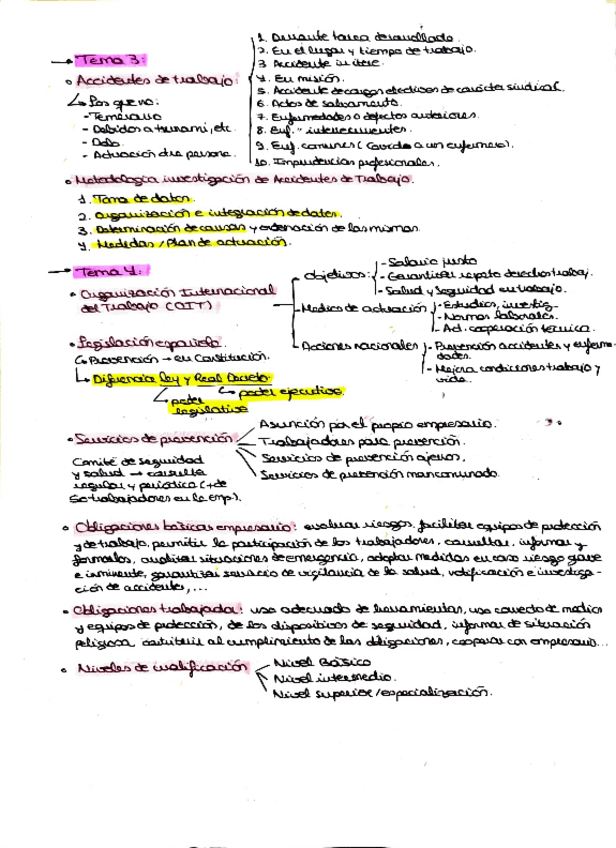 → Tema 3:
• Accidentes de trabajo:
1. Durante tarea desarrollada.
2. En el lugar y tiempo de trabajo.
3 Accidente in itere.
4. En misión.
5. Accidente de cargos electivos de carácter sindical.
6. Actos de salvamento.
7. Enfermedades o defectos anteriores.
8. Enf. " intercurrentes.
9. Enf. comunes (Covid a un enfermero).
10. Imprudencias profesionales.
↳ Los que no:
- Temerario
- Debidos a tsunami, etc.
- Dolo.
- Actuación otra persona.
• Metodología investigación de Accidentes de Trabajo.
1. Toma de datos.
2. Organización e integración de datos.
3. Determinación de causas y ordenación de las mismas.
4. Medidas / Plan de actuación.
→ Tema 4:
• Organización Internacional
del Trabajo (OIT)
- Objetivos:
- Salario justo
- Garantizar respeto derechos trabaj.
- Salud y seguridad en trabajo.
- Medios de actuación
- Estudios, investig-
- Normas laborales.
- Act. cooperación técnica.
- Acciones nacionales
- Prevención accidentes y enferme-
dades.
- Mejora condiciones trabajo y
vida.
• Legislación española.
↳ Prevención → en Constitución.
↳ Diferencia ley y Real Decreto
↳ poder ejecutivo.
↳ poder
legislativo
• Servicios de prevención
Asunción por el propio empresario.
Trabajadores para prevención.
Servicios de prevención ajenos.
Servicios de prevención mancomunado.
Comité de seguridad
y salud → consulta
regular y periódica (+ de
50 trabajadores en la emp).
• Obligaciones básicas empresario: evaluar riesgos, facilitar equipos de protección
y de trabajo, permitir la participación de los trabajadores, consultar, informar y
formarlos, analizar situaciones de emergencia, adoptar medidas en caso riesgo grave
e inminente, garantizar servicio de vigilancia de la salud, notificación e investiga-
ción de accidentes,...
• Obligaciones trabajador: uso adecuado de herramientas, uso correcto de medios
y equipos de protección, de los dispositivos de seguridad, informar de situación
peligrosa, contribuir al cumplimiento de las obligaciones, cooperar con empresario...
• Niveles de cualificación
Nivel Básico
Nivel intermedio.
Nivel superior/especialización.